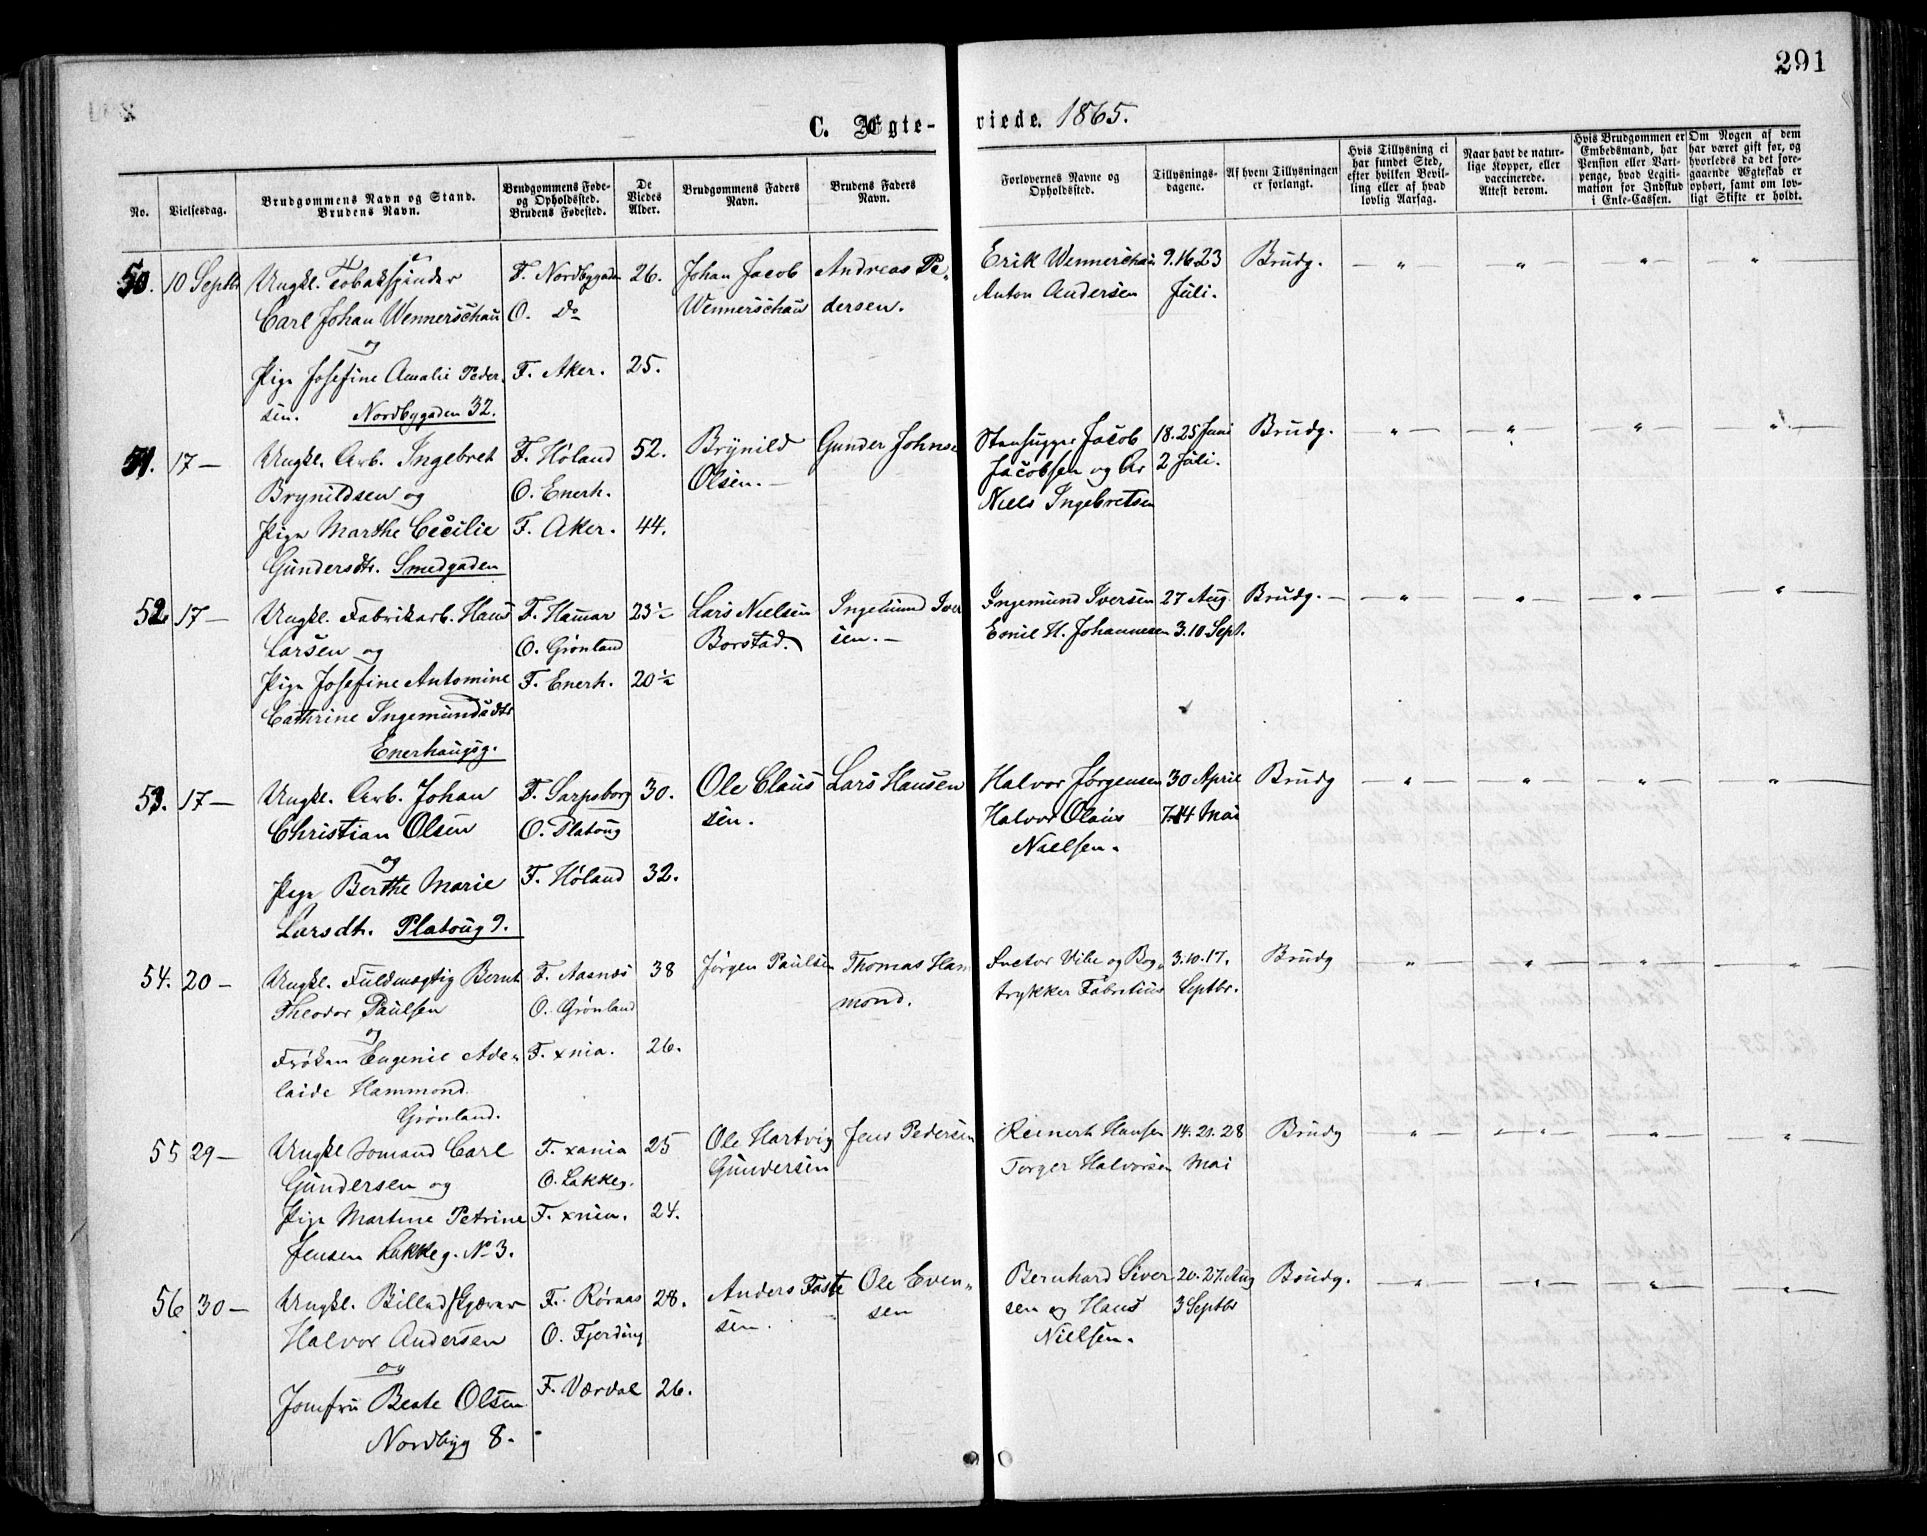 291
C. Ægteviede. 1865.
No.
Vielsesdag.
Brudgommens Navn og Stand.
Brudens Navn.
Brudgommens Føde-
og Opholdssted.
Brudens Fødested.
De
Viedes
Alder.
Brudgommens Faders
Navn.
Brudens Faders
Navn.
Forlovernes Navne og
Opholdssted.
Tillysnings-
dagene.
Af hvem Tillysningen
er forlangt.
Hvis Tillysning ei
har fundet Sted,
efter hvilken Bevil-
ling eller af hvad
lovlig Aarsag.
Naar havt de natur-
lige Kopper, eller
vaccinerede.
Attest derom.
Hvis Brudgommen er
Embedsmand, har
Pension eller Vart-
penge, hvad Legiti-
mation for Indskud
i Enke-Cassen.
Om Nogen af dem
har været gift før, og
hvorledes da det fore-
gaaende Ægteskab er
ophørt, samt om lov-
ligt Skifte er holdt.
50. 10 Septbr Ungkl. Tobakspinder F. Nordbygaden 26. Johan Jacob Andreas Pe- Erik Wennerschau 9.16 23 Brudg. — „ — „ — „ — „
Carl Johan Wennerschau O. Do Wennerschau dersen. Anton Andersen Juli.
og
Pige Josefine Amalie Peder- F. Aker. 25.
sen. Nordbygaden 32.
51. 17 — Ungkl. Arb. Ingebret F. Høland 52. Brynild Gunder Johns Jacob 18. 25 Juni Brudg. — „ — „ — „ — „
Brynildsen og O. Enerh. Olsen. — Jacobsen og Ar 2 Juli.
Niels Ingebretsen
Pige Marthe Cecilie F. Aker. 44.
Gundersdtr. Smedgaden
52. 17 — Ungkl. Fabrikarb. Hans F. Hamar 23 ½ Lars Nielsen Ingemund Iver Ingemund Iversen 27 Aug. Brudg. — „ — „ — „ — „
Larsen og O. Grønland Borstad. sen. — Emil H. Johannesen 3.10 Sept.
Pige Josefine Antomine F. Enerh. 20 ½
Cathrine Ingemundsdtr
Enerhaugsg.
53. 17 — Ungkl. Arb. Johan F. Sarpsborg 30. Ole Claus Lars Hansen Halvor Jørgensen 30 April Brudg — „ — „ — „ — „
Christian Olsen O. Platoug sen. Halvor Olaus 7. 14 Mai
og Nielsen.
Pige Berthe Marie F. Høland 32.
Larsdtr. Platoug 9.
54. 20 — Ungkl. Fuldmægtig Bernt F. Aasnæs 38 Jørgen Paulsen Thomas Ham Rector Vibe og Bog- 3.10.17. Brudg — „ — „ — „ — „
Theodor Paulsen O. Grønland mond. trykker Fabritius Septbr.
og
Frøken Eugenie Ade- F. xnia. 26.
laide Hammond.
Grønland.
55 29 — Ungkl Sømand Carl F. xania 25 Ole Hartvig Jens Pedersen Reinert Hansen 14. 21. 28 Brudg — „ — „ — „ — „
Gundersen og O. Lakkeg. Gundersen Torger Halvorsen Mai
Pige Martine Petrine F. xnia. 24.
Jensen Lakkeg. No 3.
56 30 — Ungkl. Billedskjærer F. Røraas 28. Anders Faste Ole Even- Bernhard Siver 20. 27. Aug Brudg. — „ — „ — „ — „
Halvor Andersen O. Fjerding sen. sen sen og Hans 3 Septbr
og Nielsen.
Jomfru Beate Olsen F. Værdal 26.
Nordbyg 8.